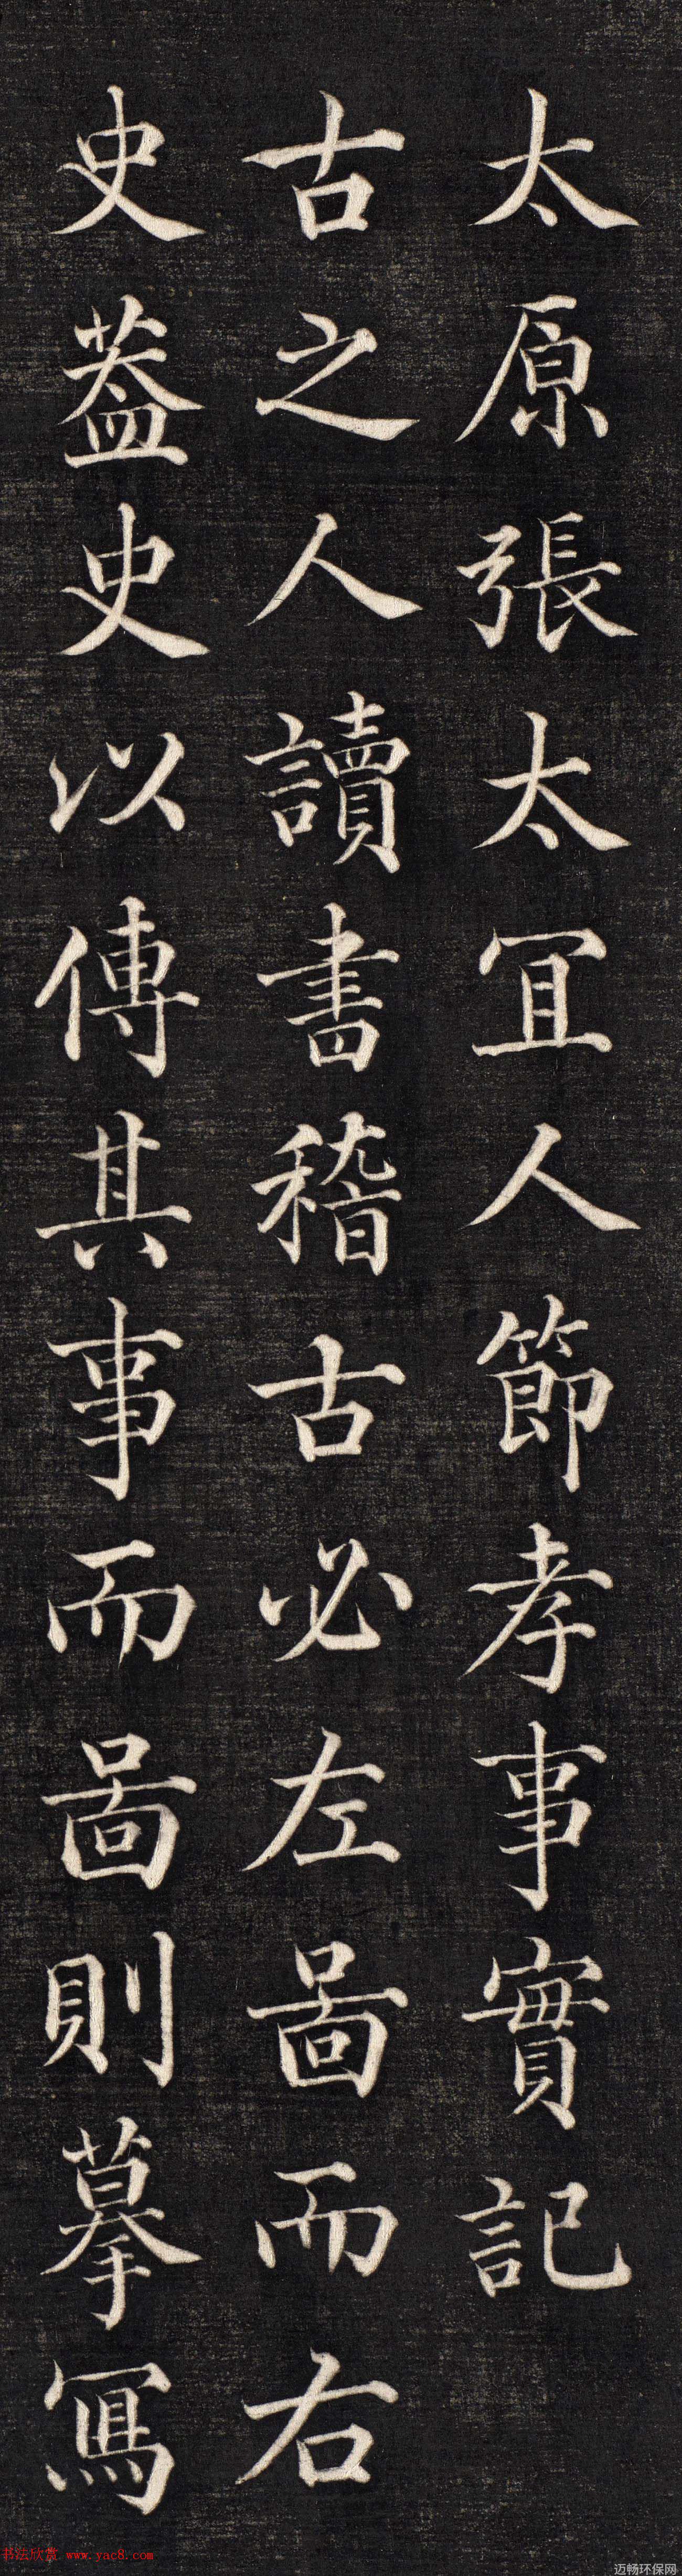 太原張太冝人節孝事實記
古之人讀書稽古必左啚而右
史葢史以傳其事而啚則摹寫
书法欣赏 www.yac8.com
迈畅环保网